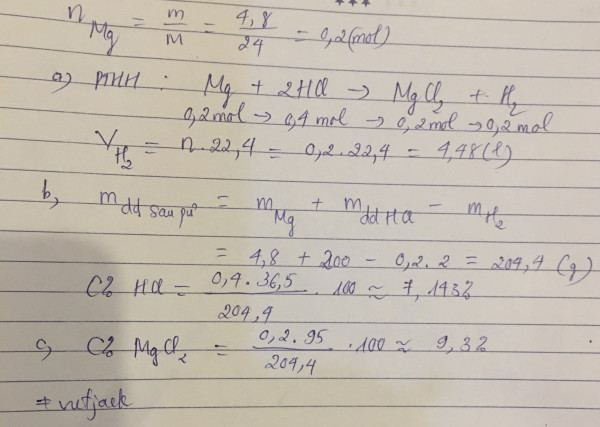 ***
n Mg = m/M = 4,8/24 = 0,2 (mol)
a) PTHH : Mg + 2HCl → MgCl2 + H2
0,2mol → 0,4mol → 0,2mol → 0,2mol
V H2 = n.22,4 = 0,2.22,4 = 4,48(l)
b, m dd sau pư = m Mg + m dd HCl - m H2
= 4,8 + 200 - 0,2.2 = 204,4 (g)
C% HCl = 0,4.36,5/204,4 .100 ≈ 7,143%
c, C% MgCl2 = 0,2.95/204,4 .100 ≈ 9,3%